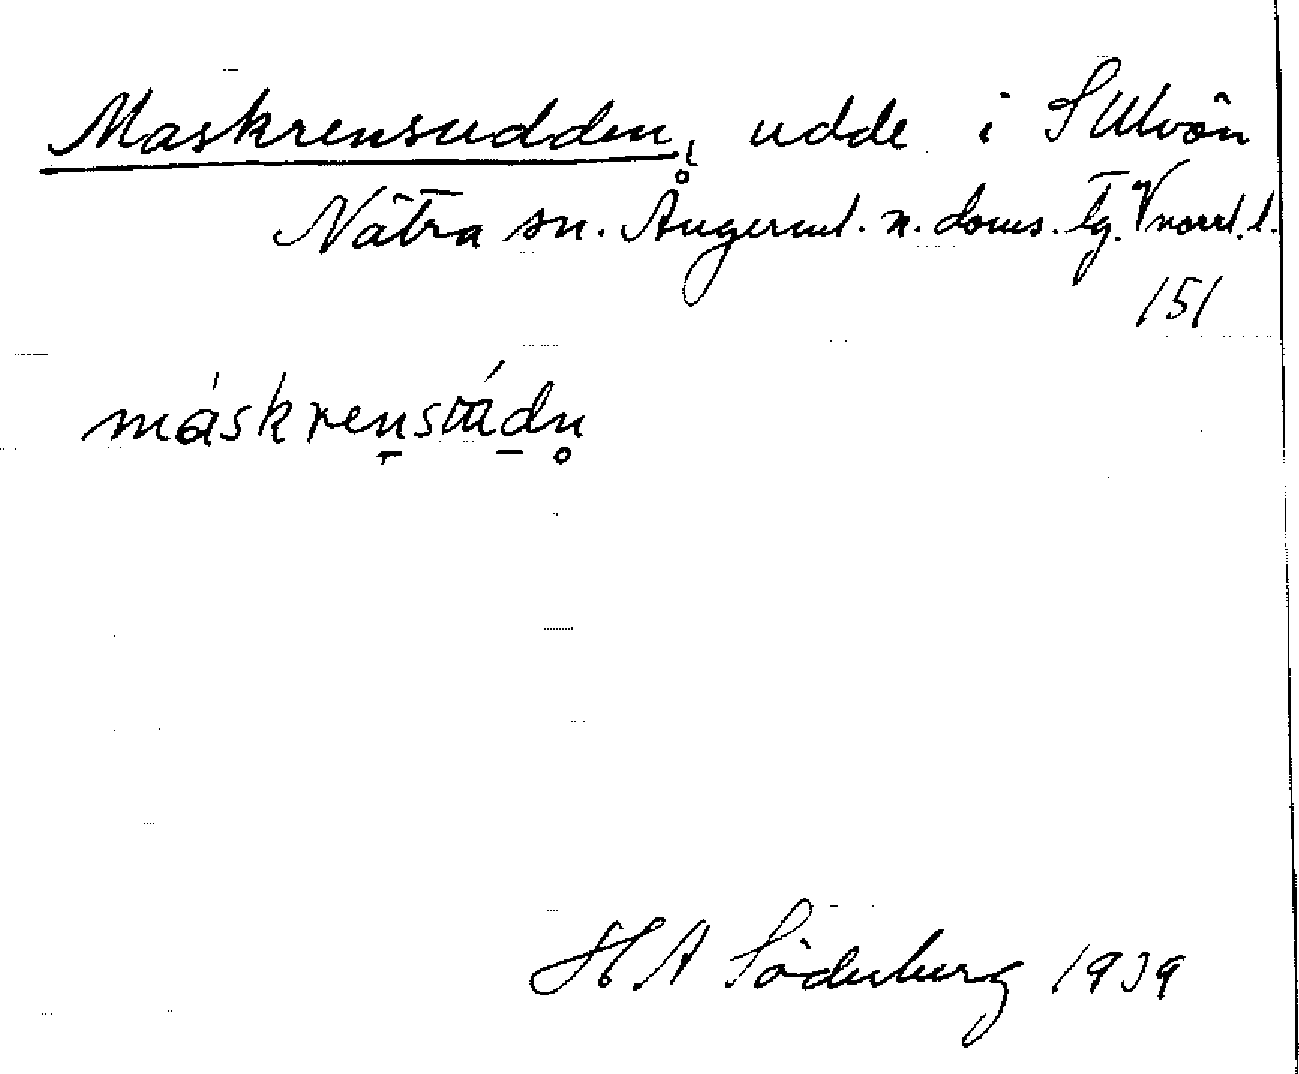 Maskrensudden, udde i S Ulvön
Nätra sn. Ångerml. n. doms. tg. Vnorrl. l.
151
máskrens
H A Söderberg 1939